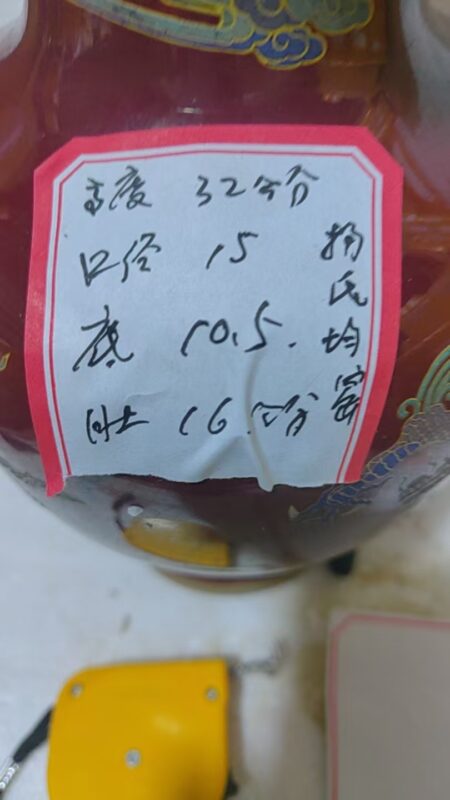 高度 32公分
口径 15
底 10.5.
肚 16公分
杨氏均窑